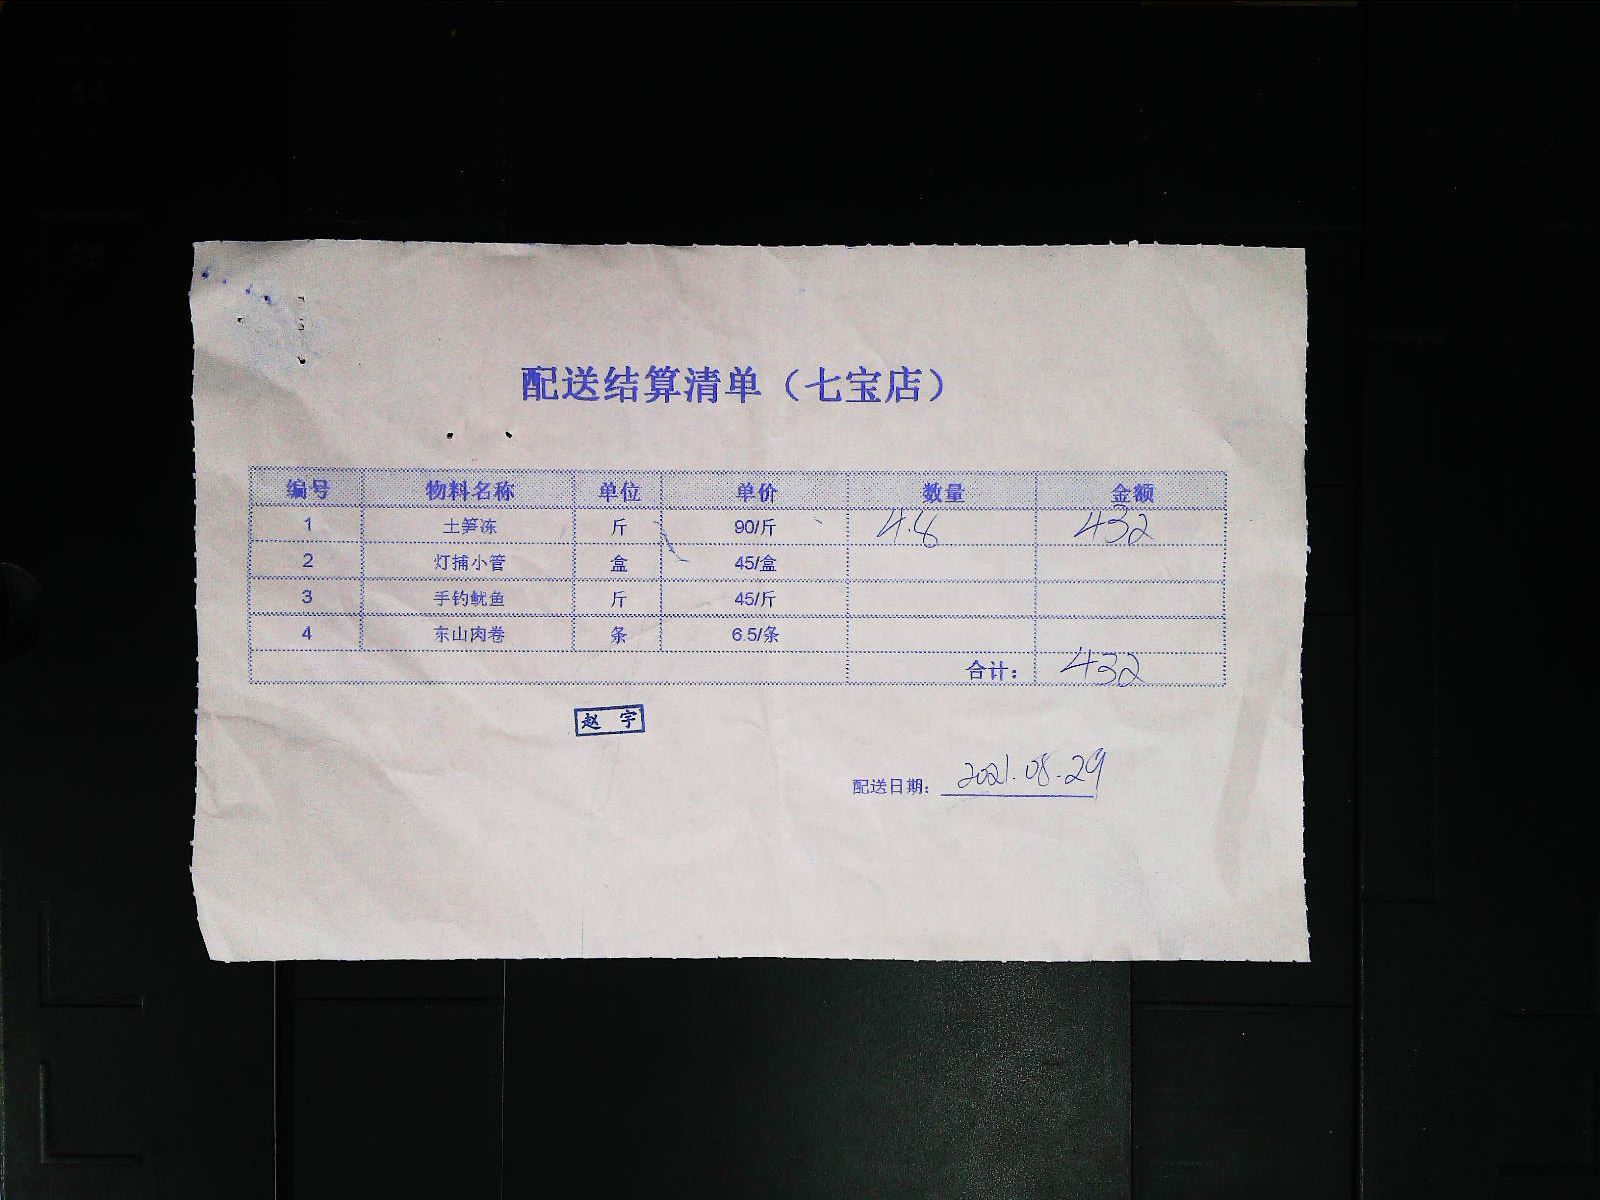 配送结算清单（七宝店）
编号 物料名称 单位 单价 数量 金额
1 土笋冻 斤 90/斤 4.8 432
2 灯捕小管 盒 45/盒
3 手钓鱿鱼 斤 45/斤
4 东山肉卷 条 6.5/条
合计： 432
赵宇
配送日期： 2021.08.29